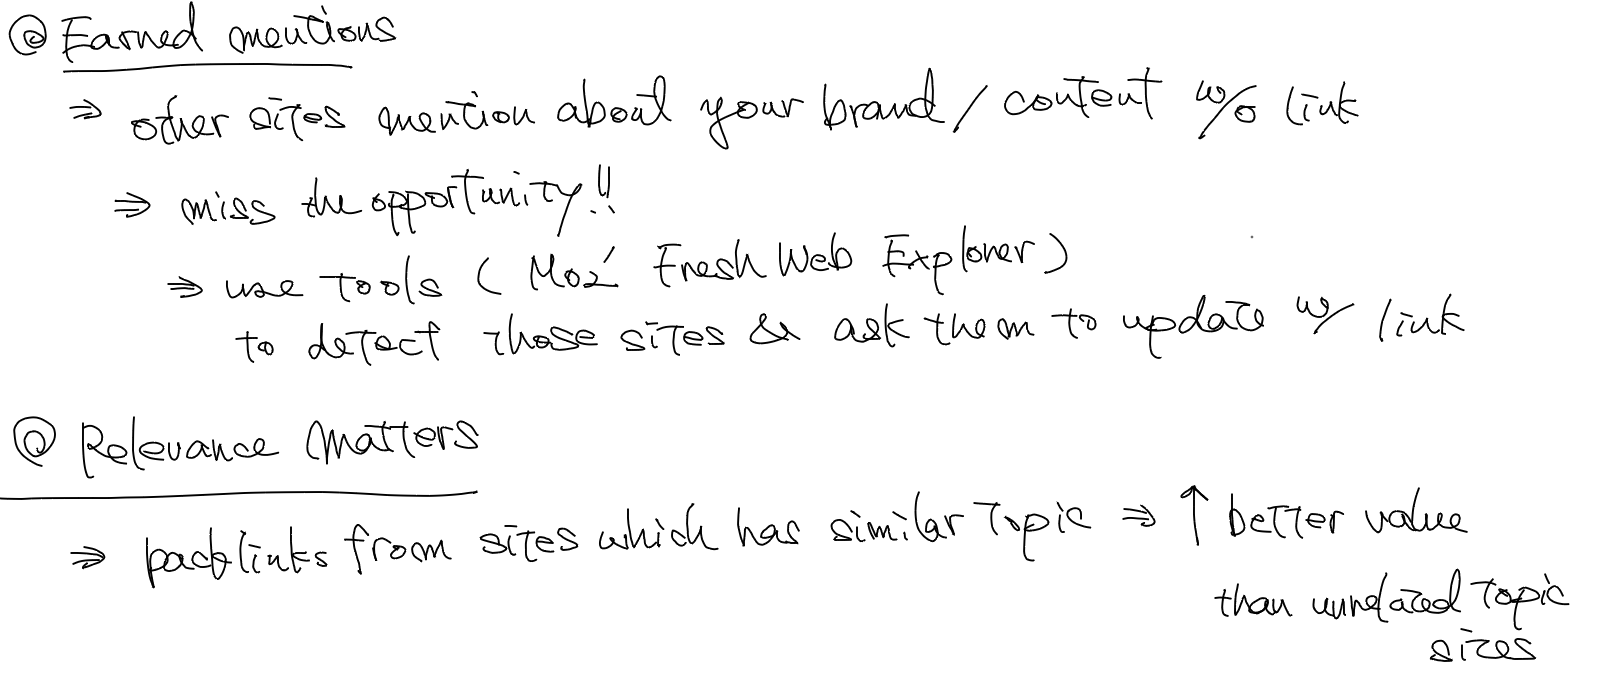 @ Earned mentions
⇒ other sites mention about your brand / content w/o link
⇒ miss the opportunity!!
⇒ use tools (Moz' Fresh Web Explorer)
to detect those sites & ask them to update w/ link
@ Relevance Matters
⇒ backlinks from sites which has similar topic ⇒ ↑ better value
than unrelated topic
sites